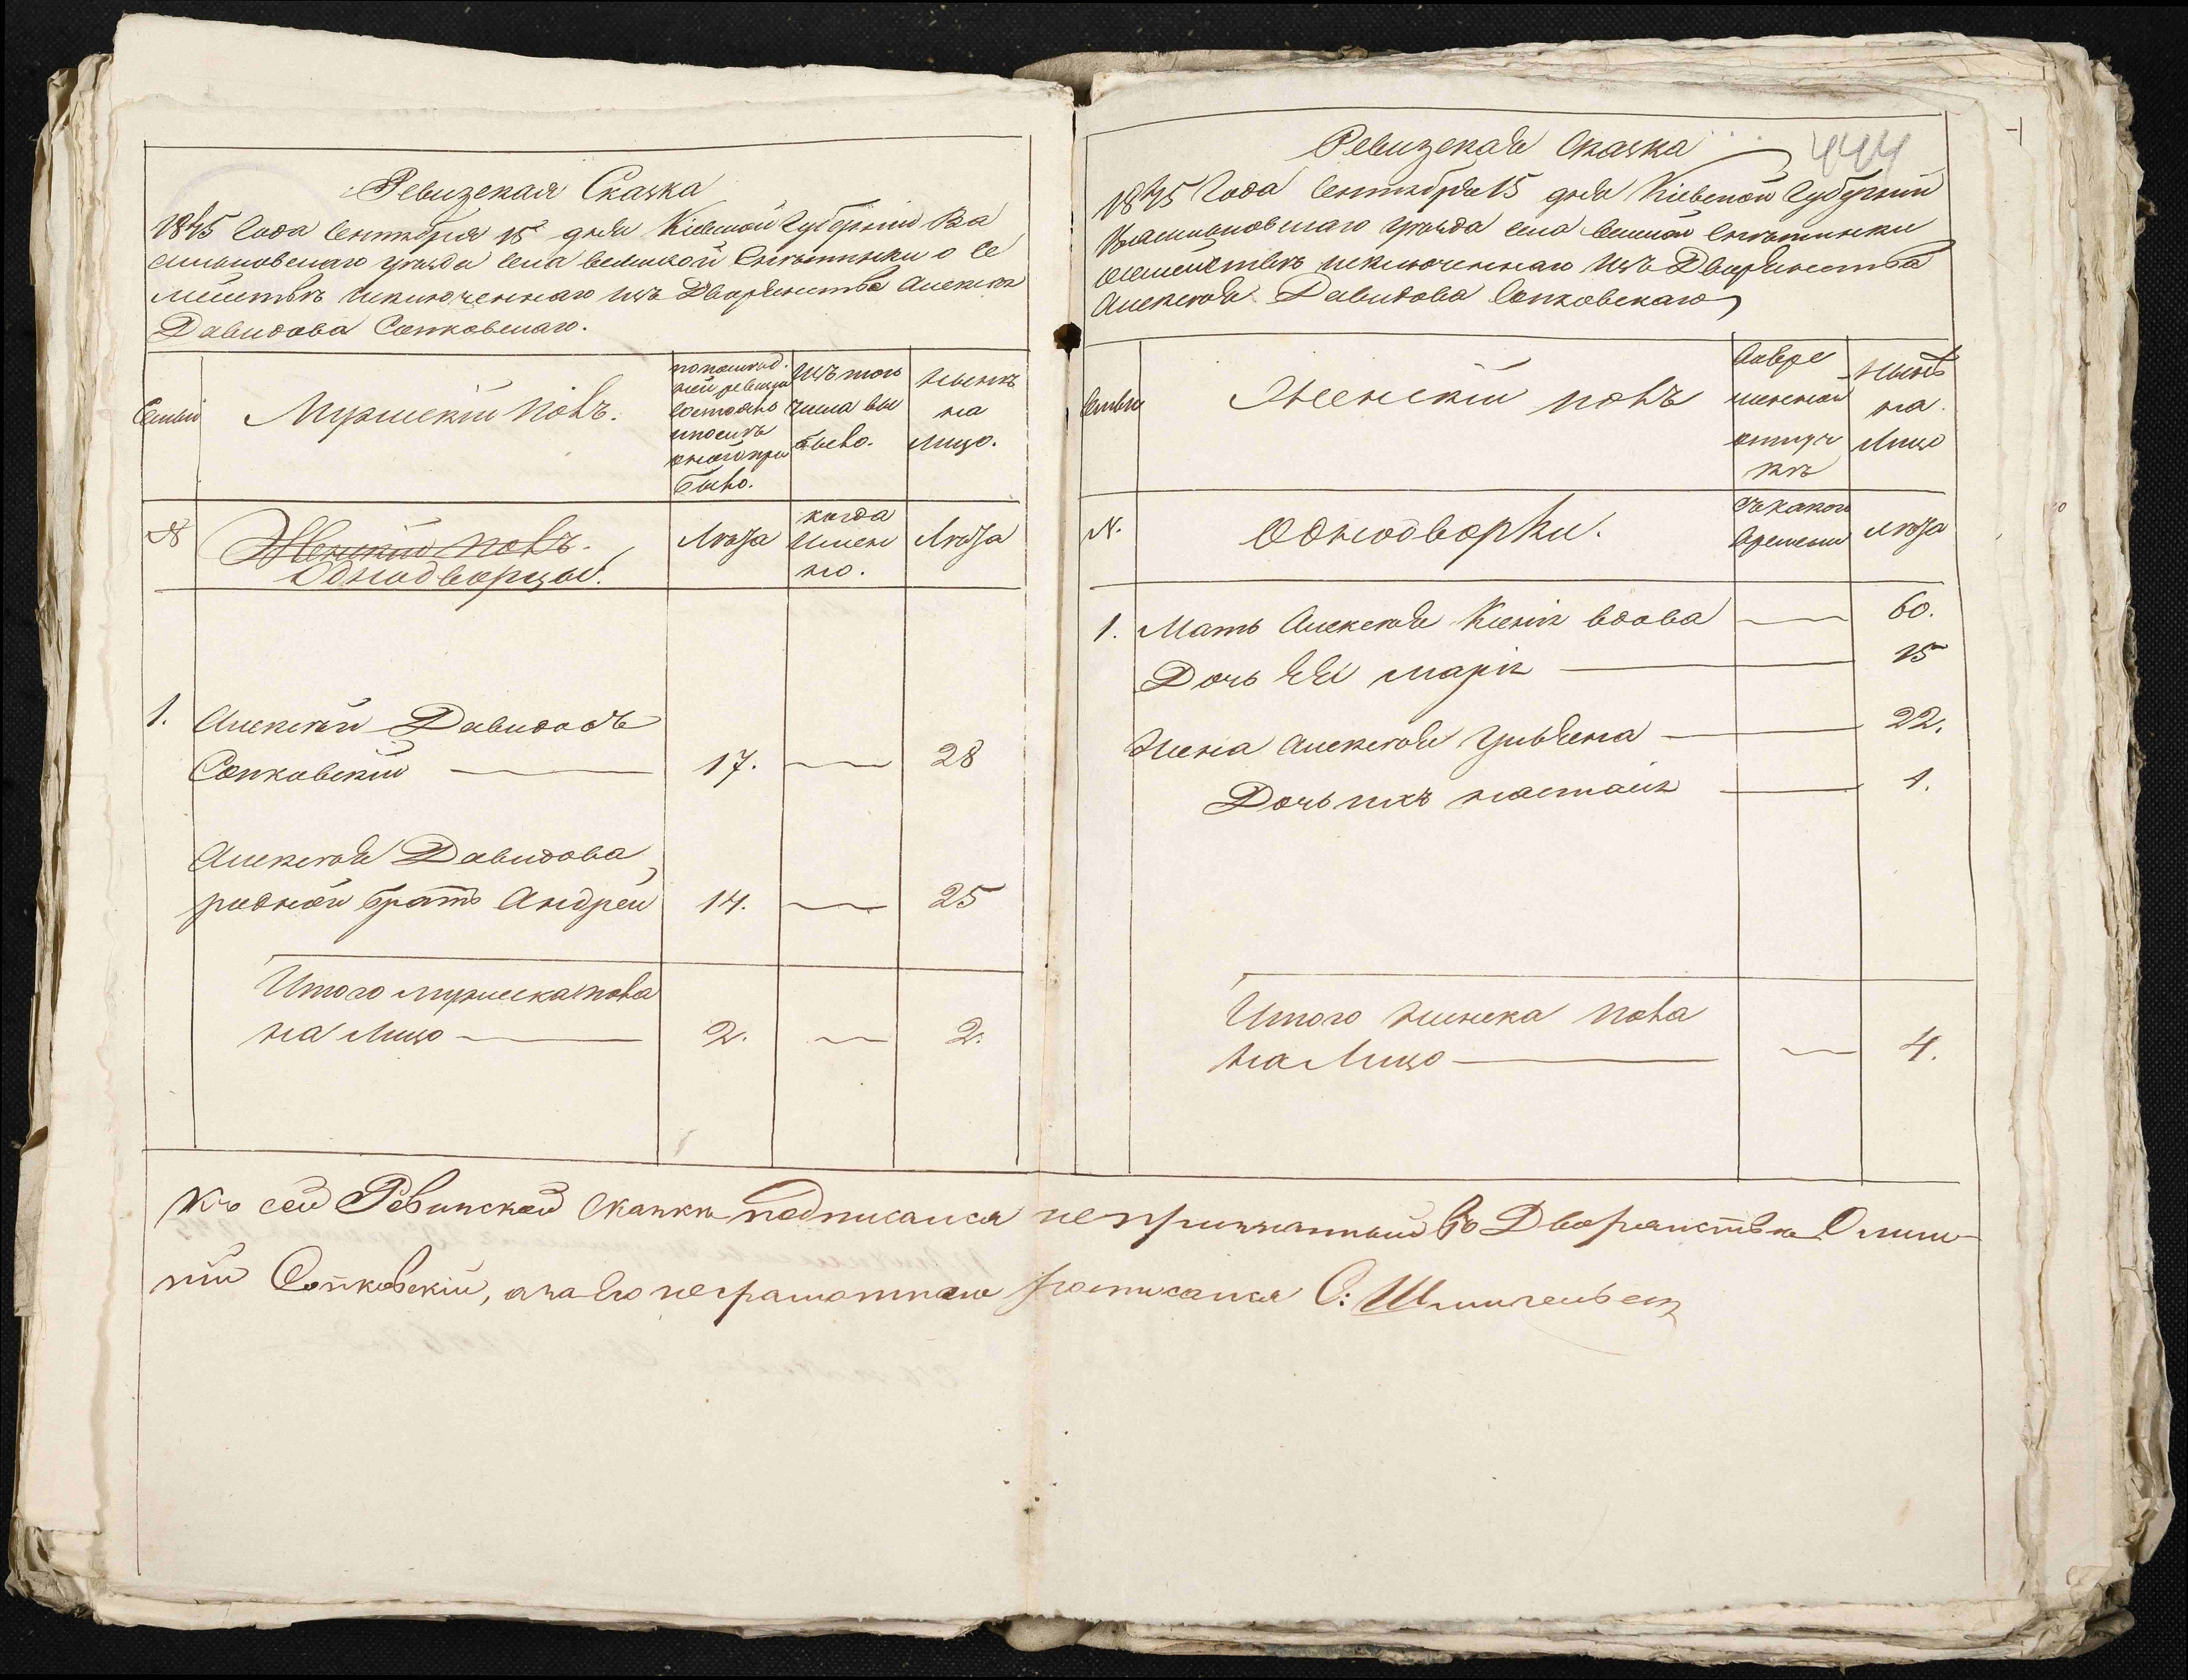 Ревизская Сказка
1845 Года Сентября 15 дня Кіевской Губерніи Ва
сильковскаго уезда Села великой Снетынки о Се
мействе исключеннаго изъ Дворянства Алексея
Давидова Сопковскаго.
Семьи
Мужескій полъ.
по послед.
ней ревизіи
состояло
и после
оной при
было.
Изъ того
числа вы
было.
Ныне
на
лицо.
№
Женскій полъ.
Однодворцы.
Лѣта
когда
Имен
но.
Лѣта
1. Алексей Давидовъ
Сопковскій 17. 28
Алексея Давидова
родной братъ Андрей 14. 25
Итого мужеска пола
на Лицо 2. 2.
444
Ревизская Сказка
1845 Года Сентября 15 дня Кіевской Губерніи
Васильковскаго уезда села великой Снетынки
о семействе исключеннаго изъ Дворянства
Алексея Давидова Сопковскаго
Семьи
Женскій полъ
Вовре
менной
отлуч
ке
Ныне
на
Лицо
№.
Однодворки.
Съ какого
Времени
Лѣта
1. Мать Алексея Ксенія вдова 60.
Дочь Ея Марія 15
Жена Алексея Ульяна 22.
Дочь ихъ Настасія 1.
Итого женска пола
на Лицо 4.
Къ сей Ревизской сказки подписался непризнанный во Дворянстве Алек
сій Сопковскій, а за его неграмотного росписался С: